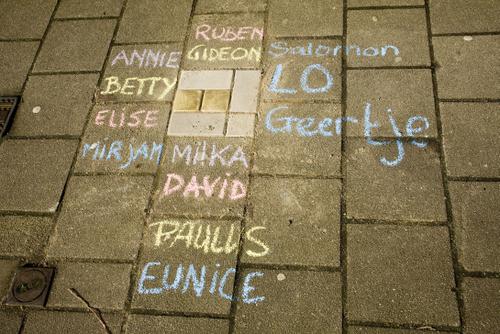 RUBEN
ANNIE GIDEON Salomon
BETTY LO
ELISE Geertje
MIRJAM MIKA
DAVID
PAULUS
EUNICE